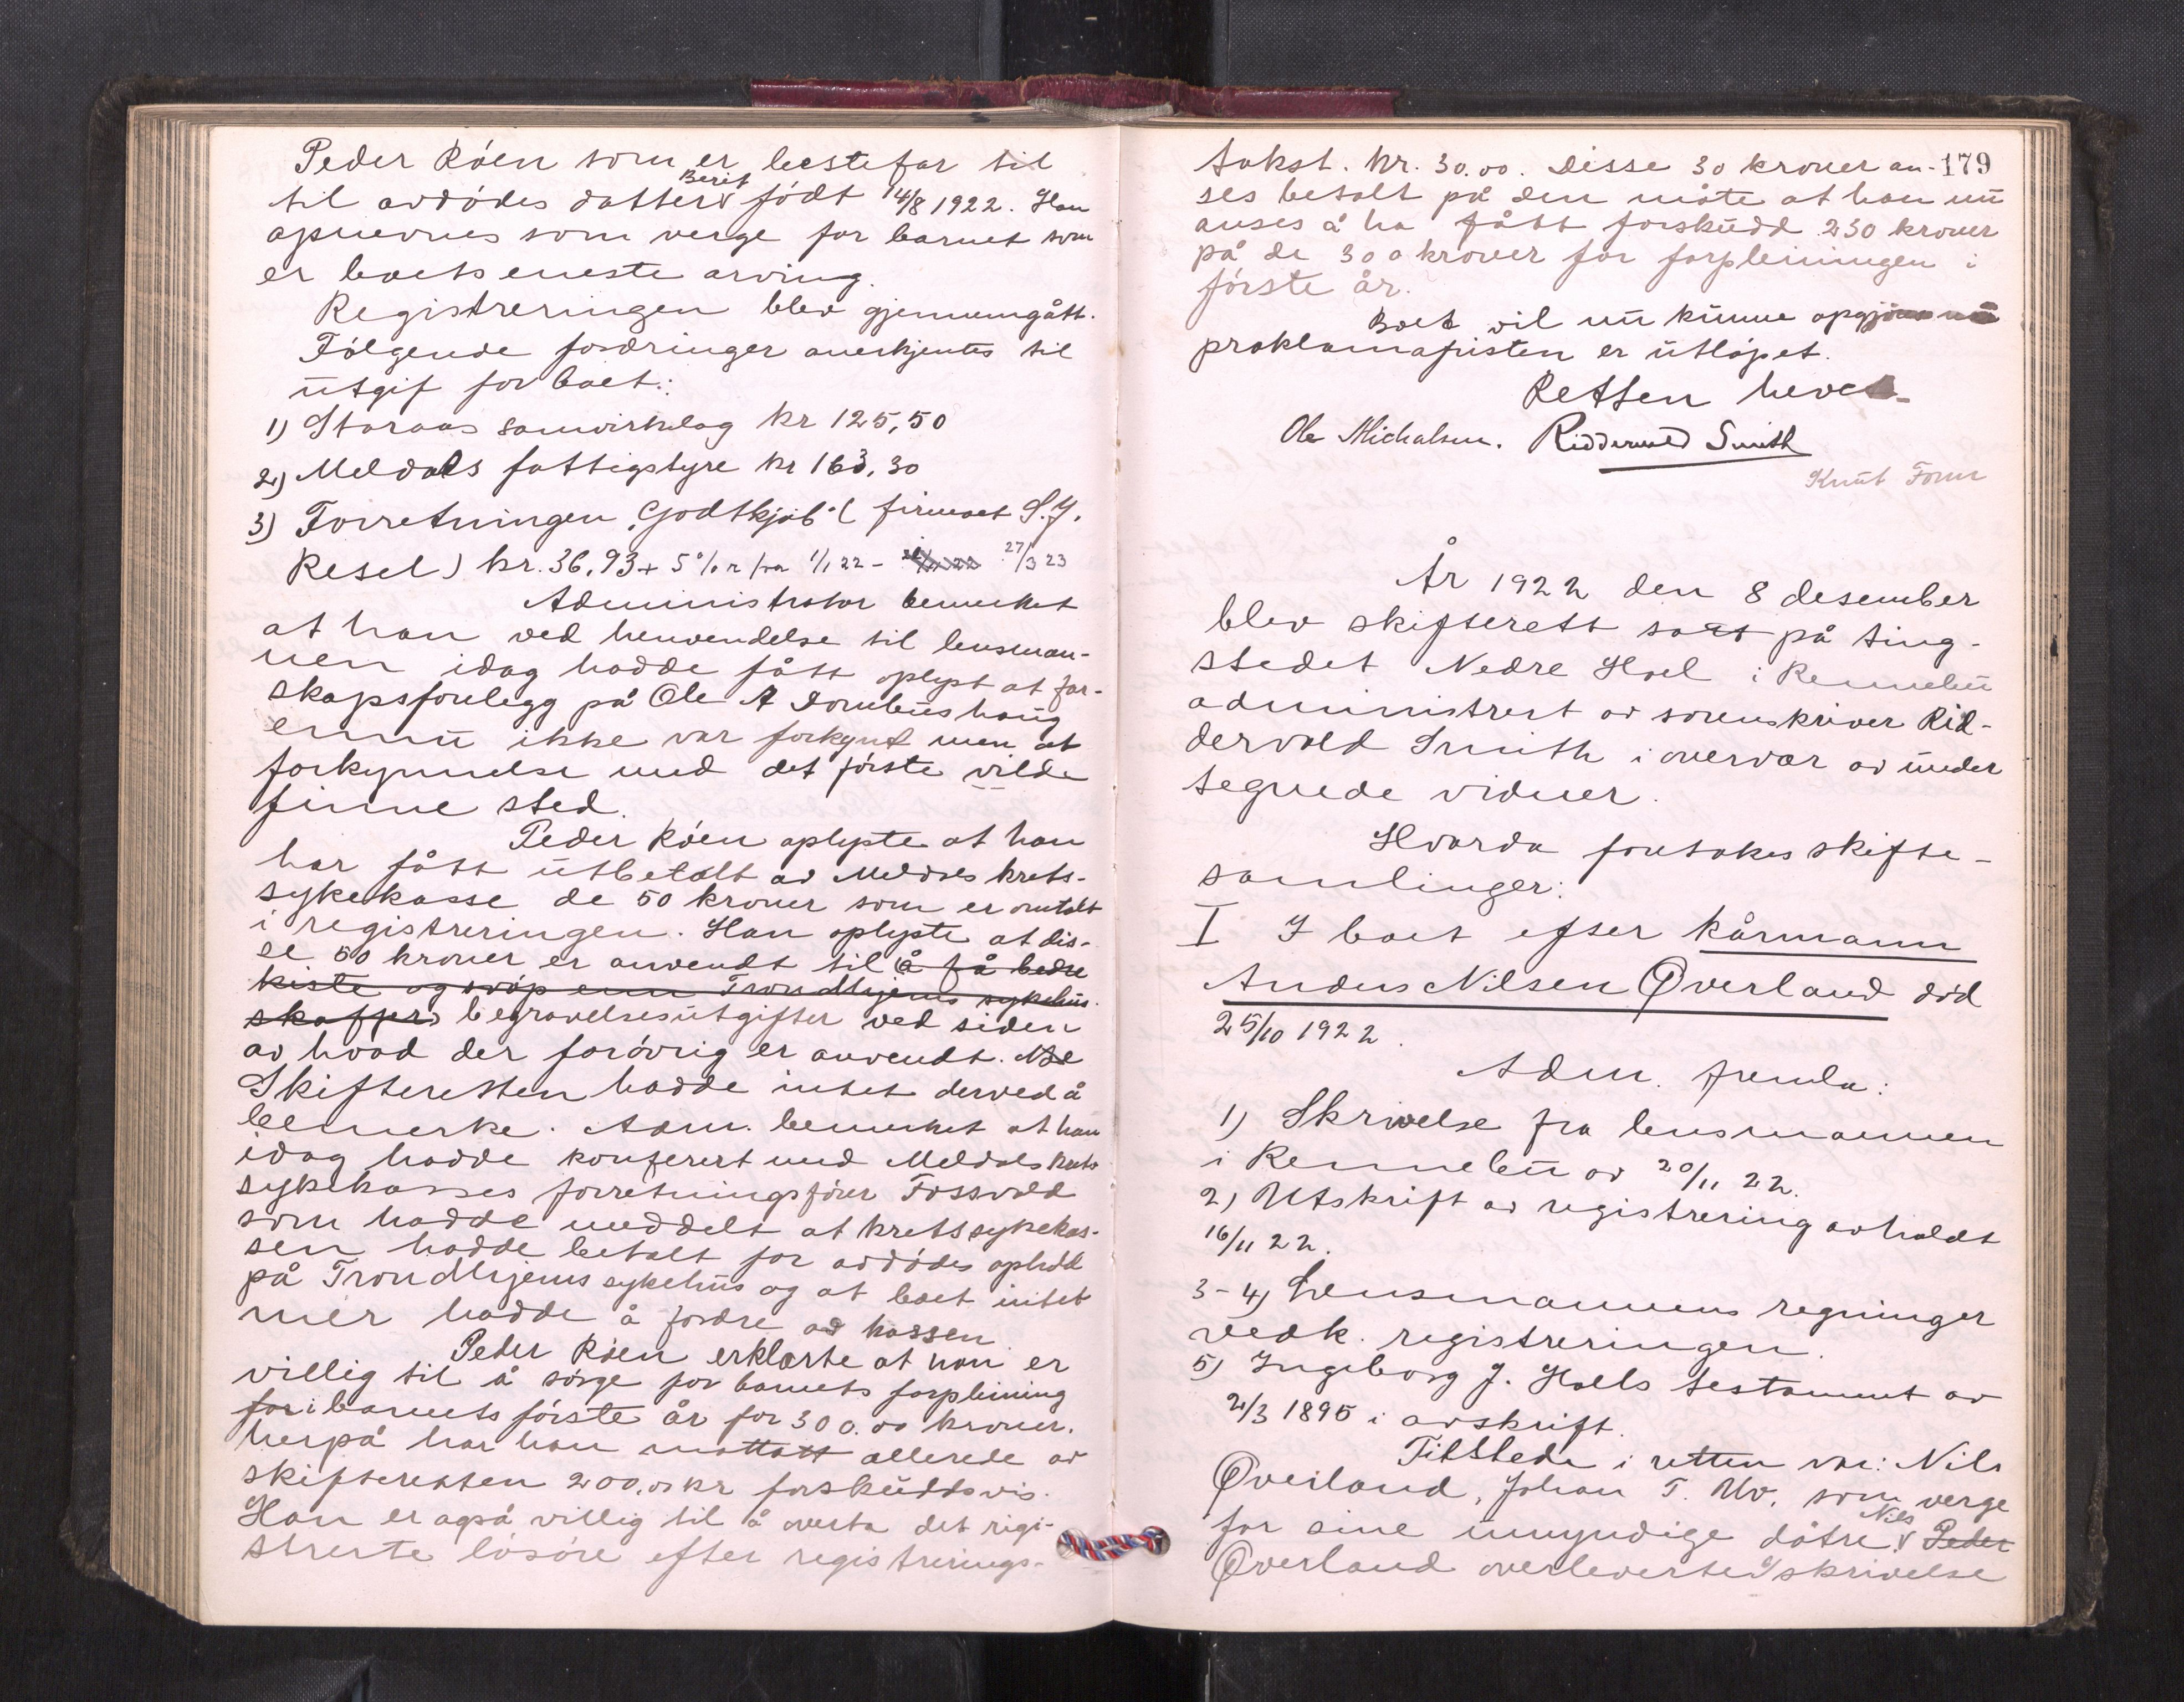 Peder Röen som er bestefar til
til avdödes datter Berit födt 14/8 1922. Han
opnevnes som verge for barnet som
er boets eneste arving.
Registreringen blev gjennemgått.
Fölgende fordringer anerkjentes til
utgift for boet:
1) Storaas samvirkelag kr 125,50
2) Meldals fattigstyre kr 163,30
3) Forretningen "Godtkjöb" (firmaet S. J.
Resel) kr. 36,93 + 5 % r fra 1/1 22 - 27/3 23
Administrator bemerket
at han ved henvendelse til lensman-
nen idag hadde fått oplyst at far-
skapsforelegg på Ole A Dombushaug
ennu ikke var forkynt men at
forkynnelse med det förste vilde
finne sted.
Peder Röen oplyste at han
har fått utbetalt av Meldals krets-
sykekasse de 50 kroner som er omtalt
i registreringen. Han oplyste at dis-
se 50 kroner er anvendt til å få bedre
kiste og svöp enn Trondhjems sykehus
skaffer begravelsesutgifter ved siden
av hvad der forövrig er anvendt.
Skifteretten hadde intet derved å
bemerke. Adm. bemerket at han
idag hadde konferert med Meldals krets
sykekasses forretningsförer Fossvold
som hadde meddelt at kretssykekas-
sen hadde betalt for avdödes ophold
på Trondhjems sykehus og at boet intet
mer hadde å fordre av kassen.
Peder Röen erklærte at han er
villig til å sörge for barnets forpleining
for i barnets förste år for 300.00 kroner.
herpå har han mottatt allerede av
skifteretten 200,00 kr forskuddsvis.
Han er også villig til å overta det regi-
strerte lösöre efter registrerings-
179
takst. kr. 30.00. Disse 30 kroner an-
ses betalt på den måte at han nu
anses å ha fått forskudd 230 kroner
på de 300 kroner for forpleiningen i
förste år.
Boet vil nu kunne opgjöres
proklamafristen er utlöpet.
Retten hevet
Ole Michalsen. Riddervold Smith
Knut Forn
År 1922 den 8 desember
blev skifterett satt på ting-
stedet Nedre Hoel i Rennebu
administrert av sorenskriver Rid-
dervold Smith i overvær av under
tegnede vidner.
Hvorda foretokes skifte-
samlinger:
I I boet efter kårmann
Anders Nilsen Överland död
25/10 1922.
Adm. fremla:
1) Skrivelse fra lensmannen
i Rennebu av 20/11 22.
2) Utskrift av registrering avholdt
16/11 22.
3-4) Lensmannens regninger
vedk. registreringen.
5) Ingeborg J. Hoels testament av
2/3 1895 i avskrift.
Tilstede i retten var: Nils
Överland, Johan T. Uv, som verge
for sine umyndige dötre. Nils Peder
Överland overleverte skrivelse